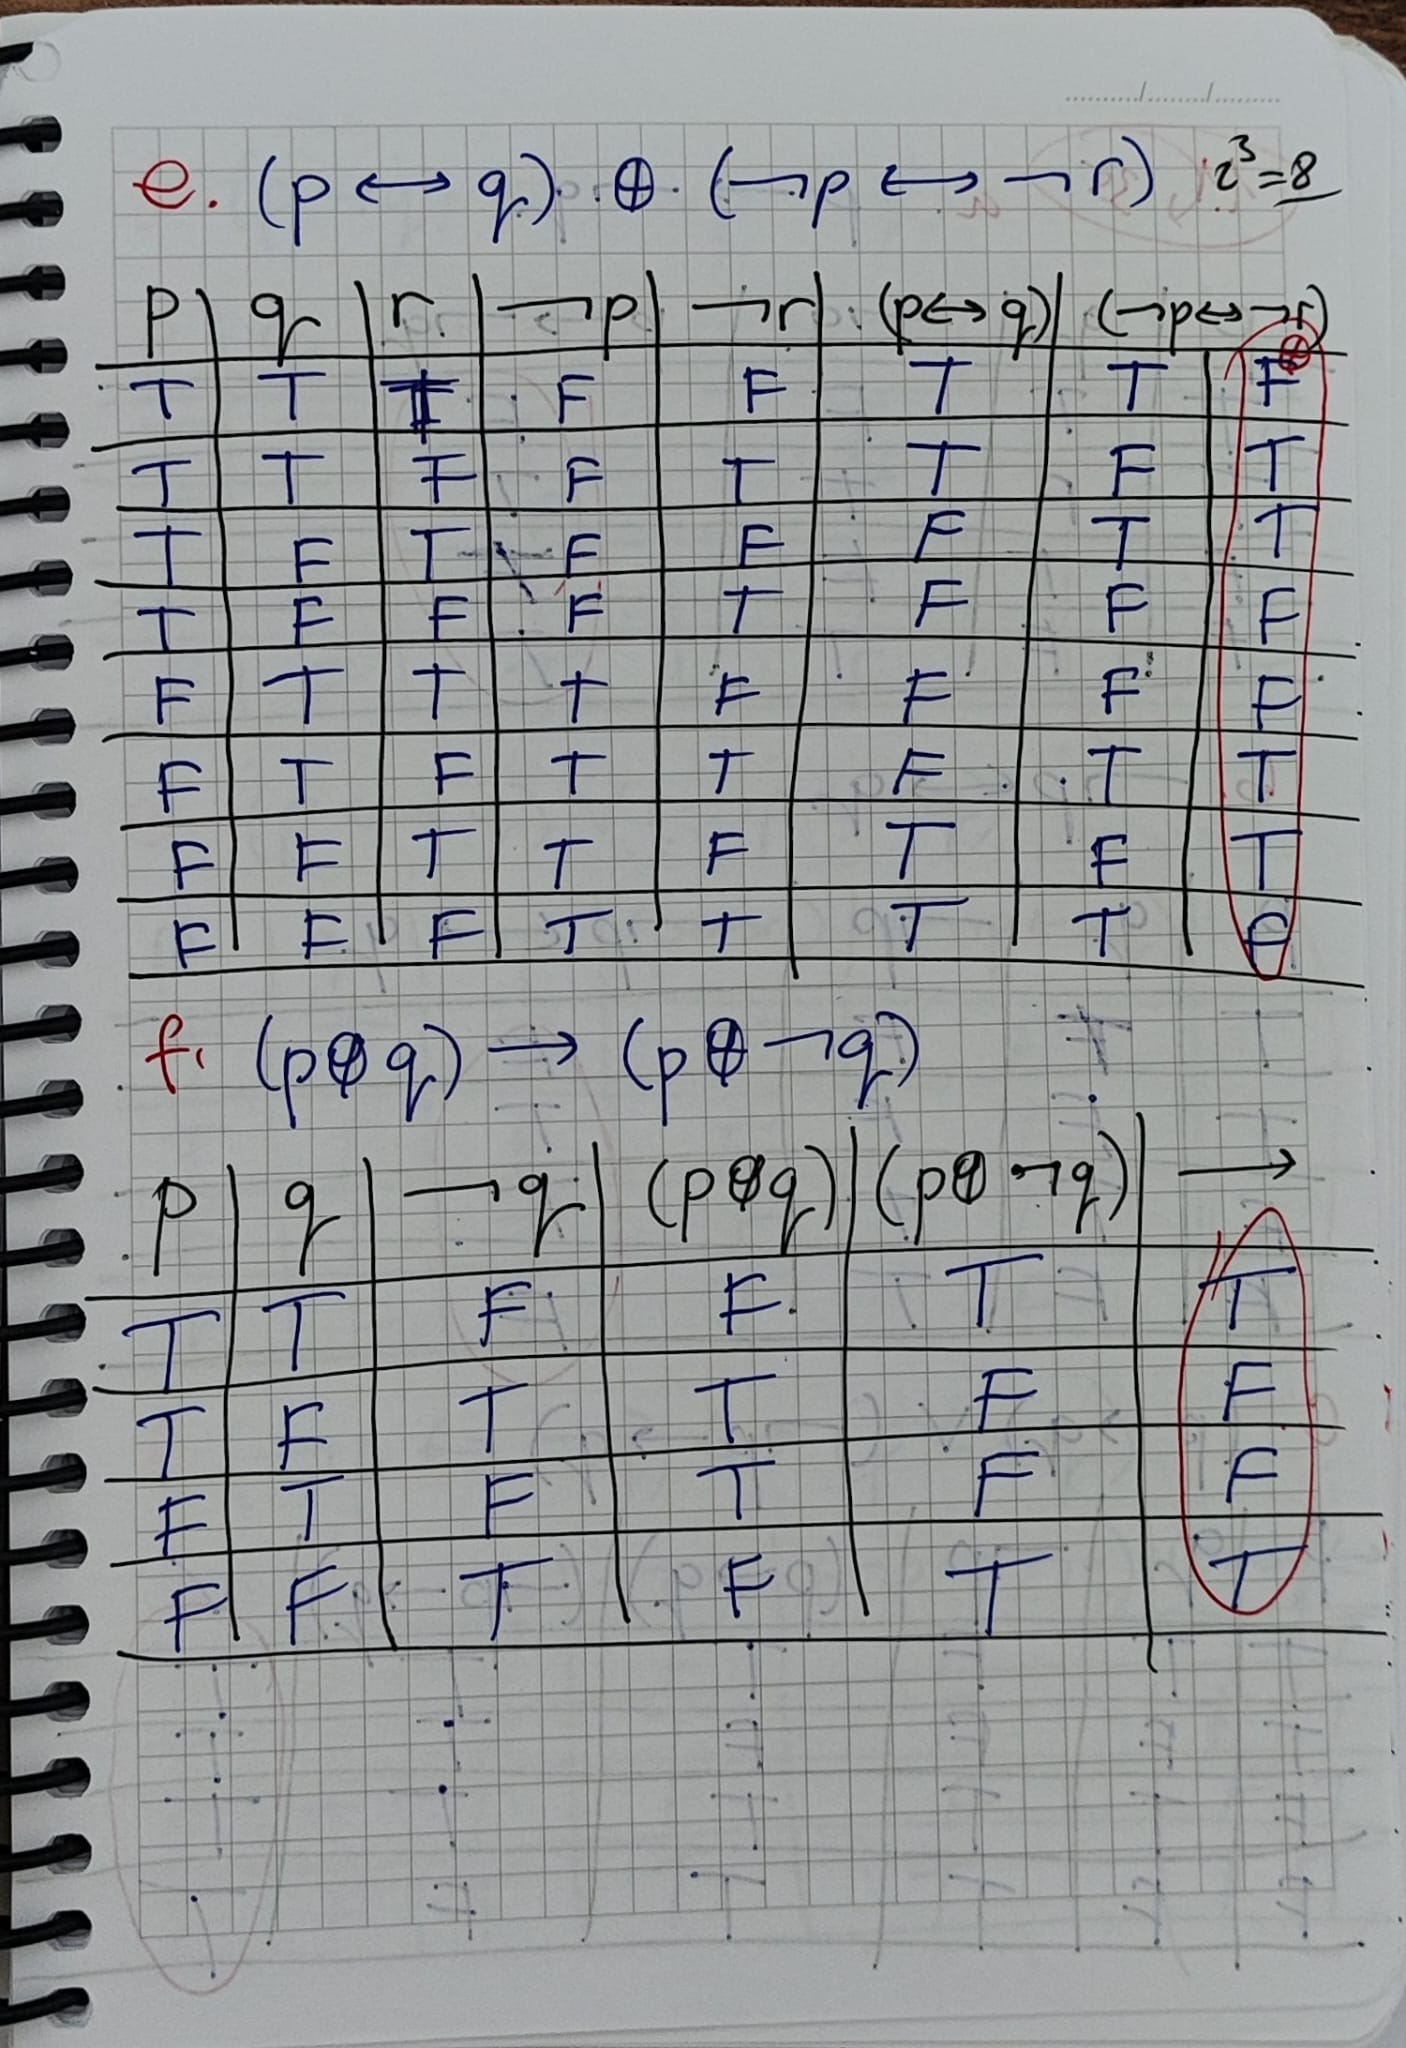 e. (p ⟷ q) ⊕ (¬p ⟷ ¬r) 2³=8
p q r ¬p ¬r (p↔q) (¬p↔¬r) ⊕
T T T F F T T F
T T F F T T F T
T F T F F F T T
T F F F T F F F
F T T T F F F F
F T F T T F T T
F F T T F T F T
F F F T T T T F
f. (p⊕q) ⟶ (p⊕¬q)
p q ¬q (p⊕q) (p⊕¬q) ⟶
T T F F T T
T F T T F F
F T F T F F
F F T F T T